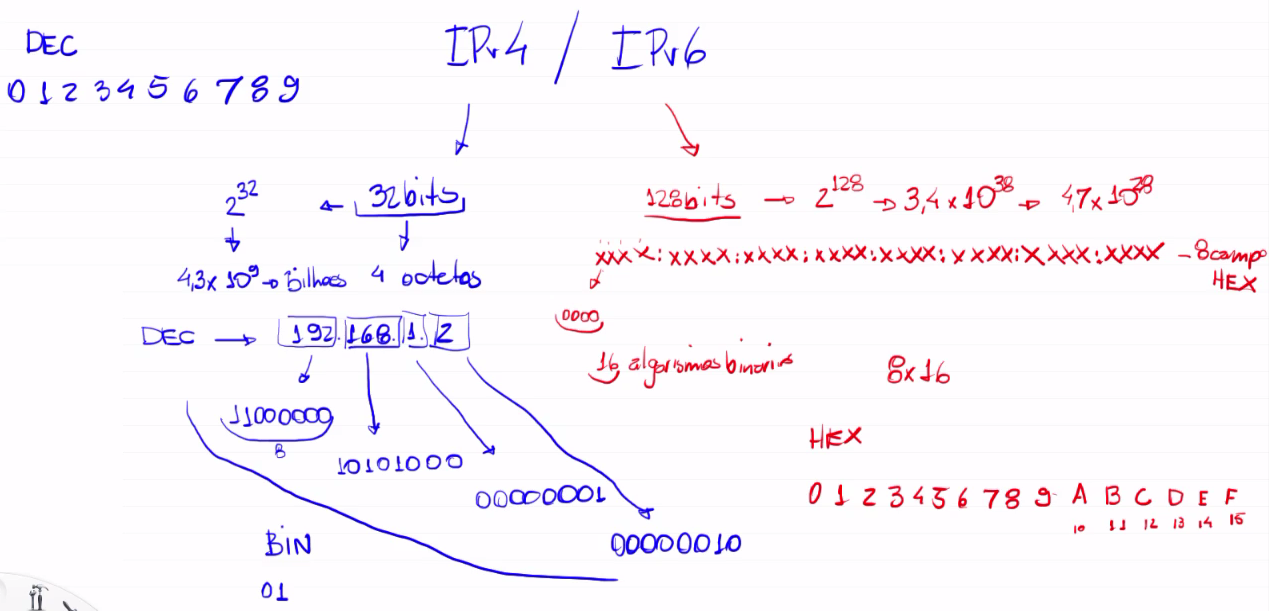 DEC
0 1 2 3 4 5 6 7 8 9
IPv4 / IPv6
2^32 ← 32bits
4,3x10^9 → bilhoes
4 octetos
DEC → 192.168.1.2
11000000
8
10101000
00000001
00000010
BIN
01
128bits → 2^128 → 3,4 x 10^38 → 47 x 10^28
xxxx:xxxx:xxxx:xxxx:xxxx:xxxx:xxxx:xxxx - 8 campo
HEX
0000
16 algarismos binarios
8x16
HEX
0 1 2 3 4 5 6 7 8 9 A B C D E F
10 11 12 13 14 15